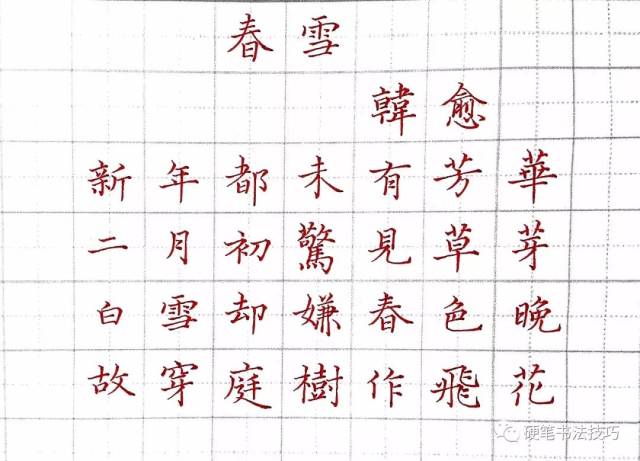 春雪
韓愈
新年都未有芳華
二月初驚見草芽
白雪却嫌春色晚
故穿庭樹作飛花
硬笔书法技巧